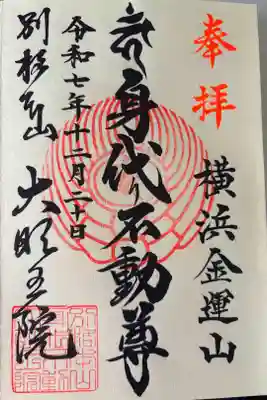 奉拝
横浜金運山
身代り不動尊
令和七年十二月二十日
別格本山 大明王院